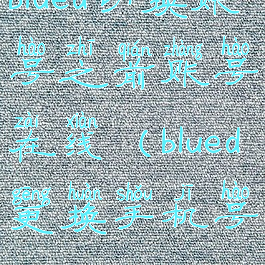 blued切换账
hào zhī qián zhàng hào
号之前账号
zài xiàn
在线（blued
gēng huàn shǒu jī hào
更换手机号